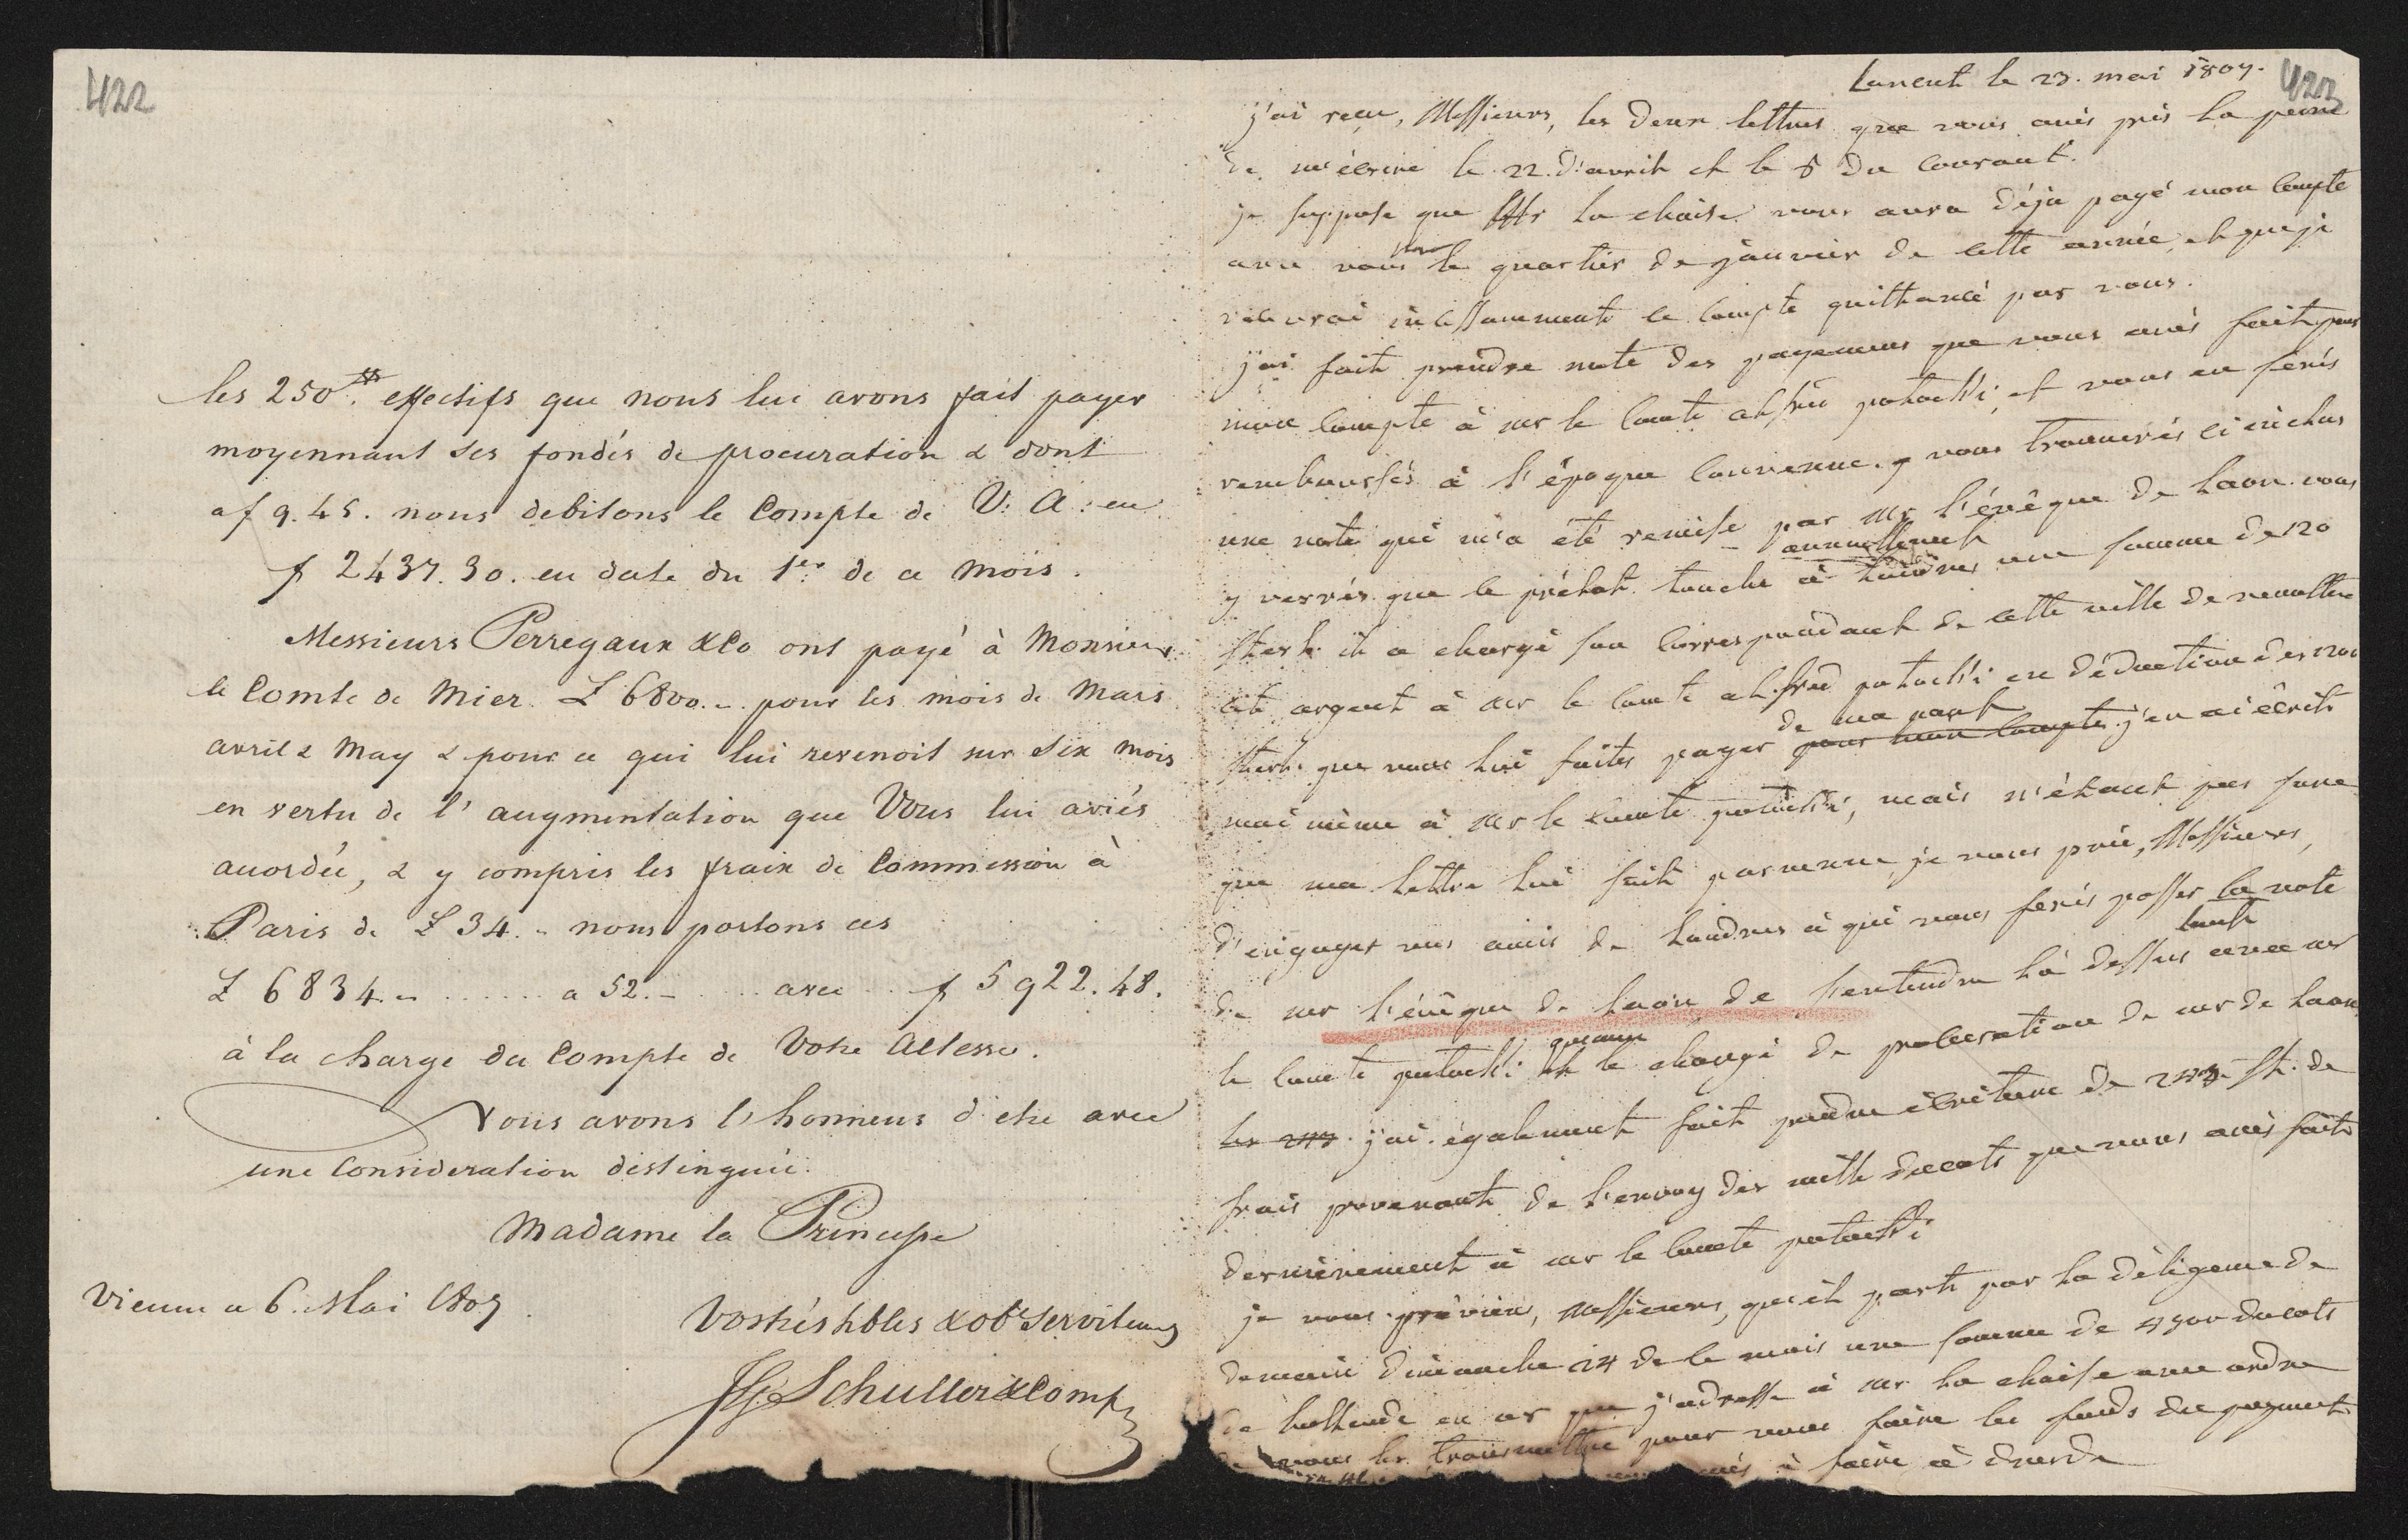 422
les 250 # effectifs que nous lui avons fait payer
moyennant ses fondés de procuration & dont
a f 9.45. nous debitons le Compte de V: A: en
f 2437.30. en date du 1er de ce mois.
Messieurs Perregaux & Co ont payé à Monsieur
le Comte de Mier £ 6800.- pour les mois de Mars
avril & May & pour ce qui lui revenoit sur six mois
en vertu de l'augmentation que Vous lui aviés
accordée, & y compris les fraix de Commission à
Paris de £ 34.- nous portons ces
£ 6834.- ...... a 52.- ... avec ... f 5922.48.
à la charge du Compte de Votre Altesse.
Nous avons l'honneur d'etre avec
une Consideration distinguée.
Madame la Princesse
Vienne ce 6. Mai 1807.
Vos trés hbles & obts Serviteurs
Schuller & Comp
423
Lancut le 23. mai 1807.
j'ai reçu, Messieurs, les deux lettres que vous avés pris la peine
de m'écrire le 22. d'avril et le 8 du courant.
je suppose que Mr la chaise vous aura déja payé mon compte
avec vous pour le quartier de janvier de cette année, et que je
recevrai incessamment ce compte quittancé par vous.
j'ai fait prendre note des payemens que vous avés fait pour
mon compte à mr le comte alfred potocki, et vous en serés
remboursés à l'époque convenue. vous trouverés ci inclus
une note qui m'a été remise par mr l'évêque de laon. vous
y verrés que le prélat touche annuellement à londres une somme de 120
sterl. il a chargé son correspondant de cette ville de remettre
cet argent à mr le comte alfred potocki en déduction des
sterl. que vous lui faites payer de ma part pour mon compte. j'en ai écrit
moi même à mr le comte potocki, mais n'étant pas sure
que ma lettre lui soit parvenue, je vous prie, Messieurs,
d'engager vos amis de londres à qui vous ferés passer la note
de mr l'évêque de laon de s'entendre là dessus tant avec mr
le comte potocki qu'avec le chargé de procuration de mr de laon.
j'ai également fait prendre écriture de st. de
frais provenants de l'envoy des mille ducats que vous avés fait
dernièrement à mr le comte potocki
je vous préviens, Messieurs, qu'il part par la diligence de
demain dimanche 24 de ce mois une somme de 4500 ducats
de hollande en or que j'adresse à mr la chaise avec ordre
de vous les transmettre pour vous faire les fonds du payement
à faire à